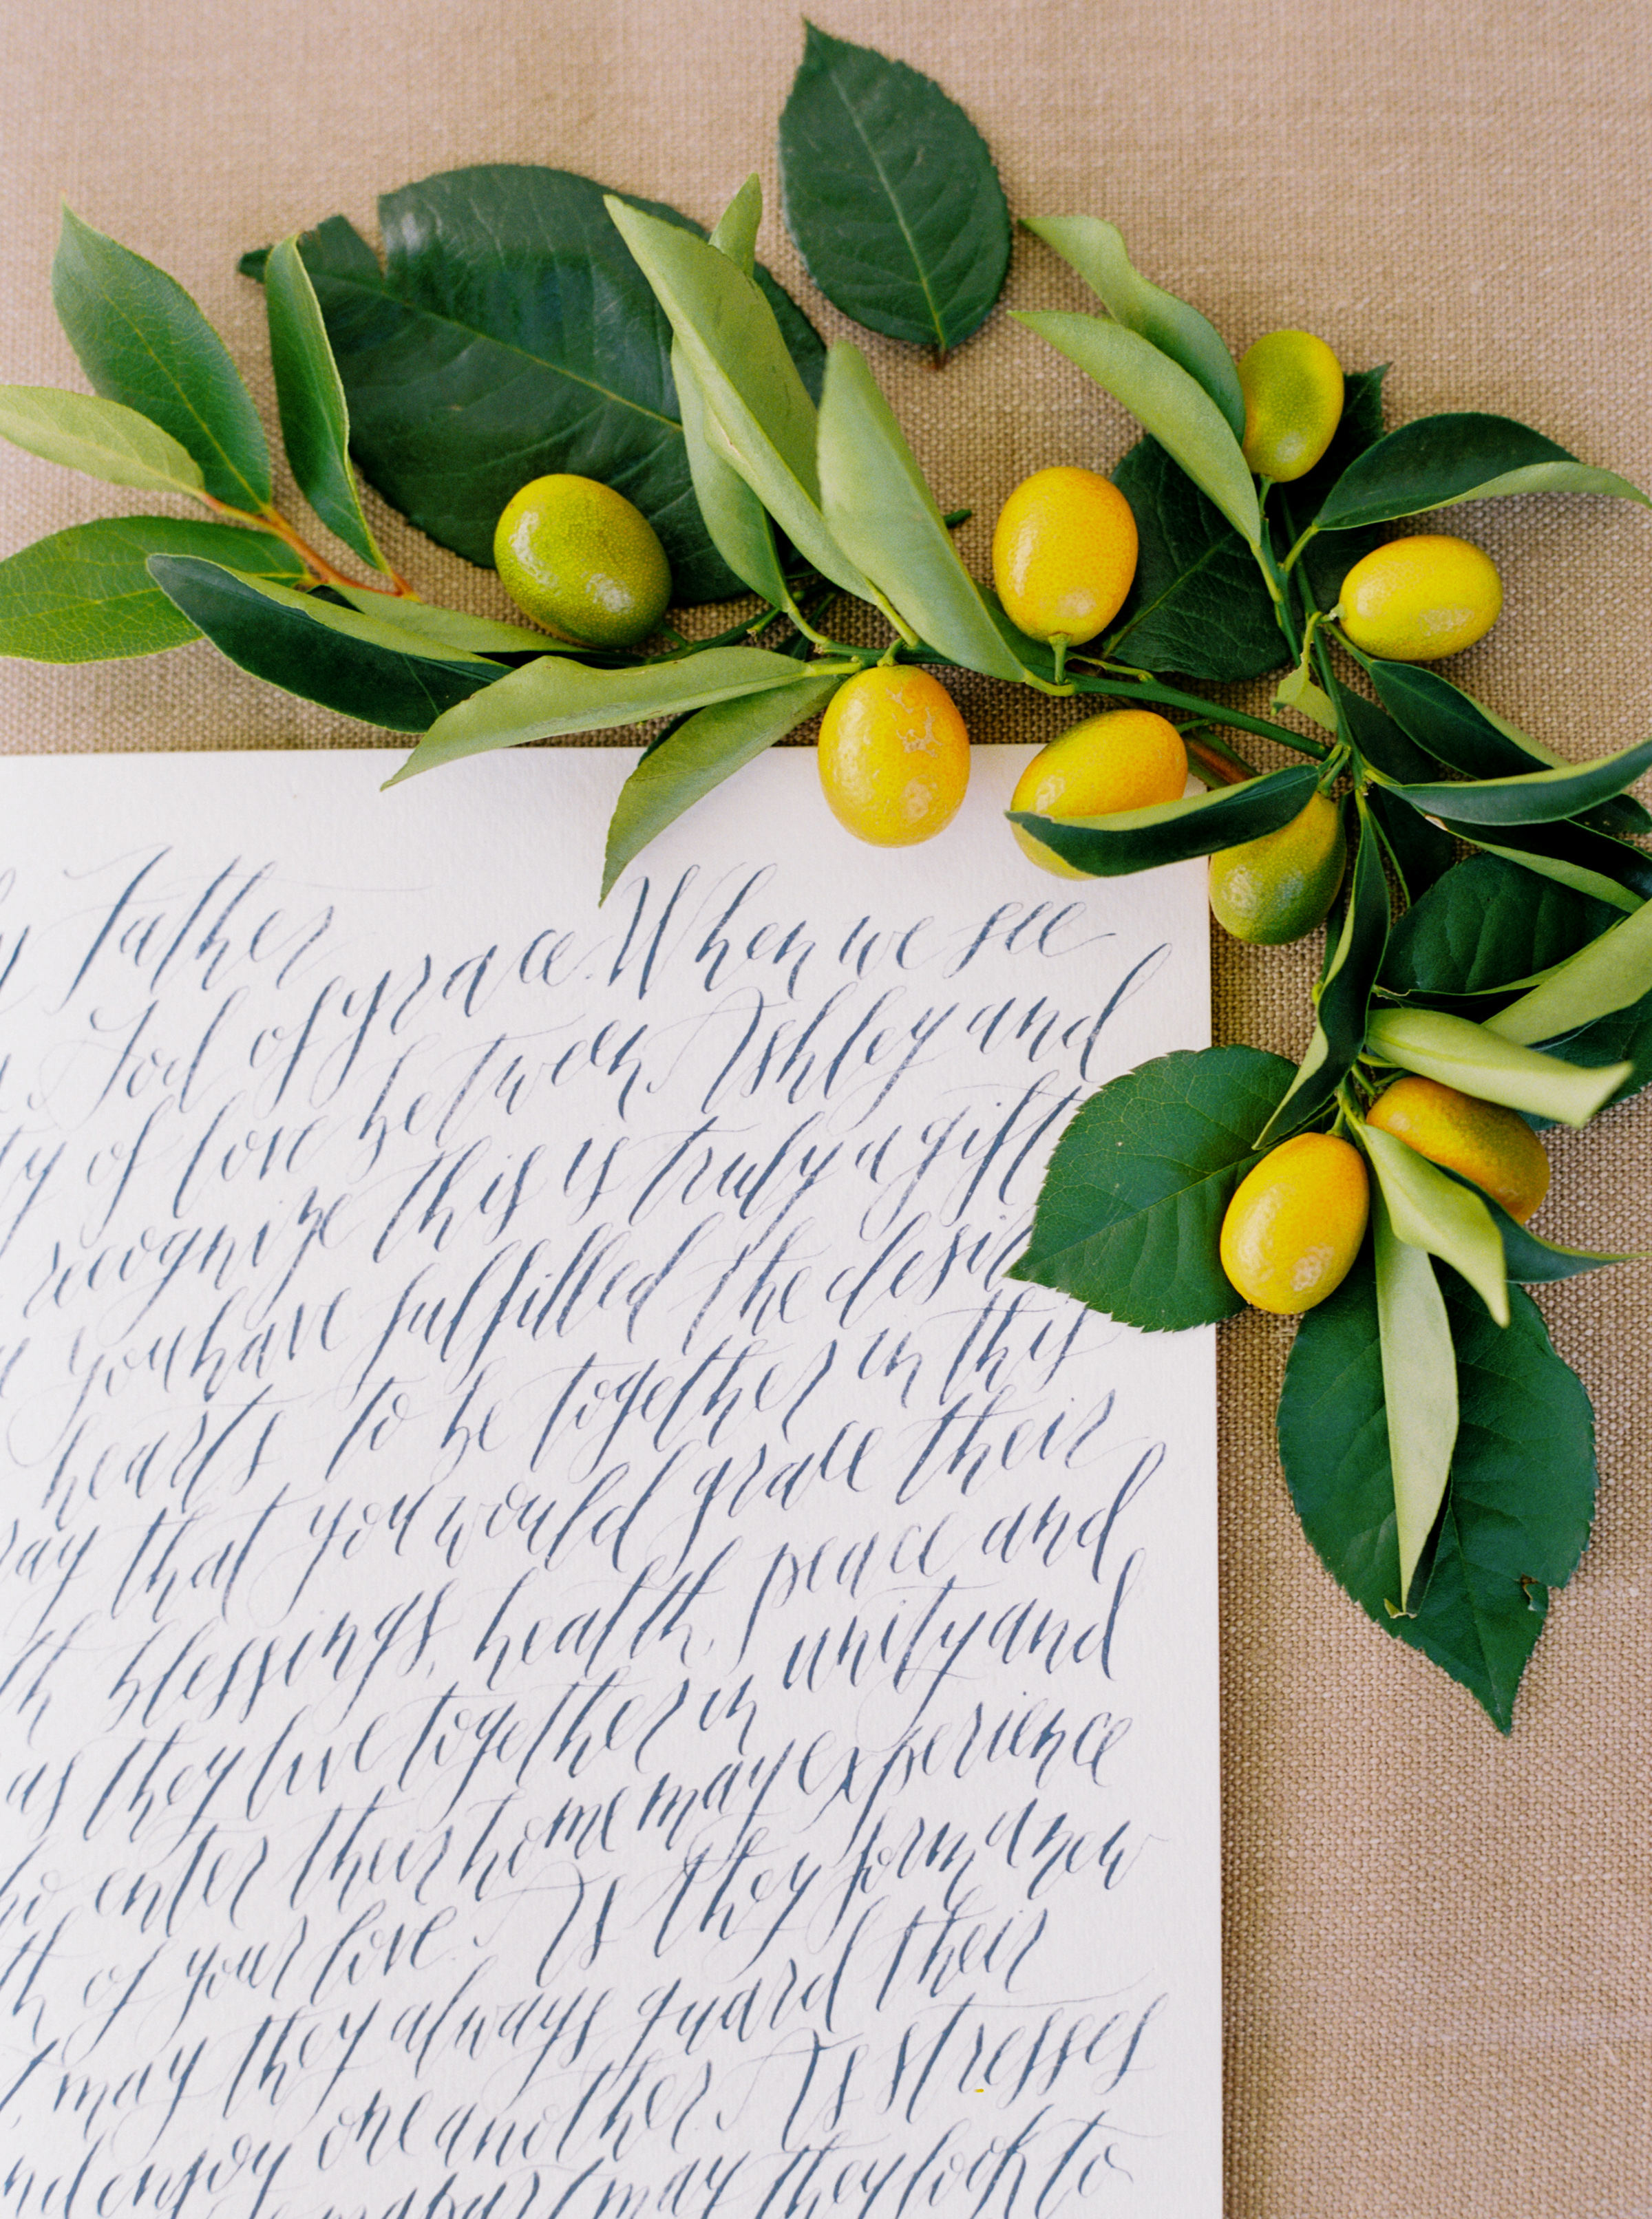 Father
God of grace. When we see
ty of love between Ashley and
recognize this is truly a gift
you have fulfilled the desir
hearts to be together in this
ray that you would grace their
th blessings, health, peace and
as they live together in unity and
ho enter their home may experience
th of your love. As they form a new
may they always guard their
nd enjoy one another. As stresses
may they look to